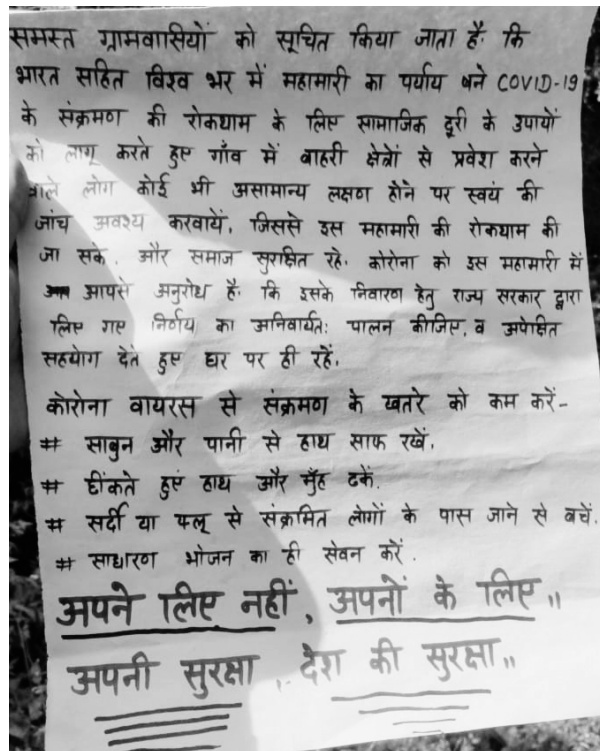 समस्त ग्रामवासियों को सूचित किया जाता है. कि
भारत सहित विश्व भर में महामारी का पर्याय बने COVID-19
के संक्रमण की रोकथाम के लिए सामाजिक दूरी के उपायों
को लागू करते हुए गाँव में बाहरी क्षेत्रों से प्रवेश करने
वाले लोग कोई भी असामान्य लक्षण होने पर स्वयं की
जांच अवश्य करवायें, जिससे इस महामारी की रोकथाम की
जा सके, और समाज सुरक्षित रहे. कोरोना को इस महामारी में
आपसे अनुरोध है. कि इसके निवारण हेतु राज्य सरकार द्वारा
लिए गए निर्णय का अनिवार्यत: पालन कीजिए, व अपेक्षित
सहयोग देते हुए घर पर ही रहें.
कोरोना वायरस से संक्रमण के खतरे को कम करें-
# साबुन और पानी से हाथ साफ रखें.
# छींकते हुए हाथ और मुँह ढकें.
# सर्दी या फ्लू से संक्रमित लोगों के पास जाने से बचें.
# साधारण भोजन का ही सेवन करें.
अपने लिए नहीं, अपनों के लिए,,
अपनी सुरक्षा, देश की सुरक्षा,,